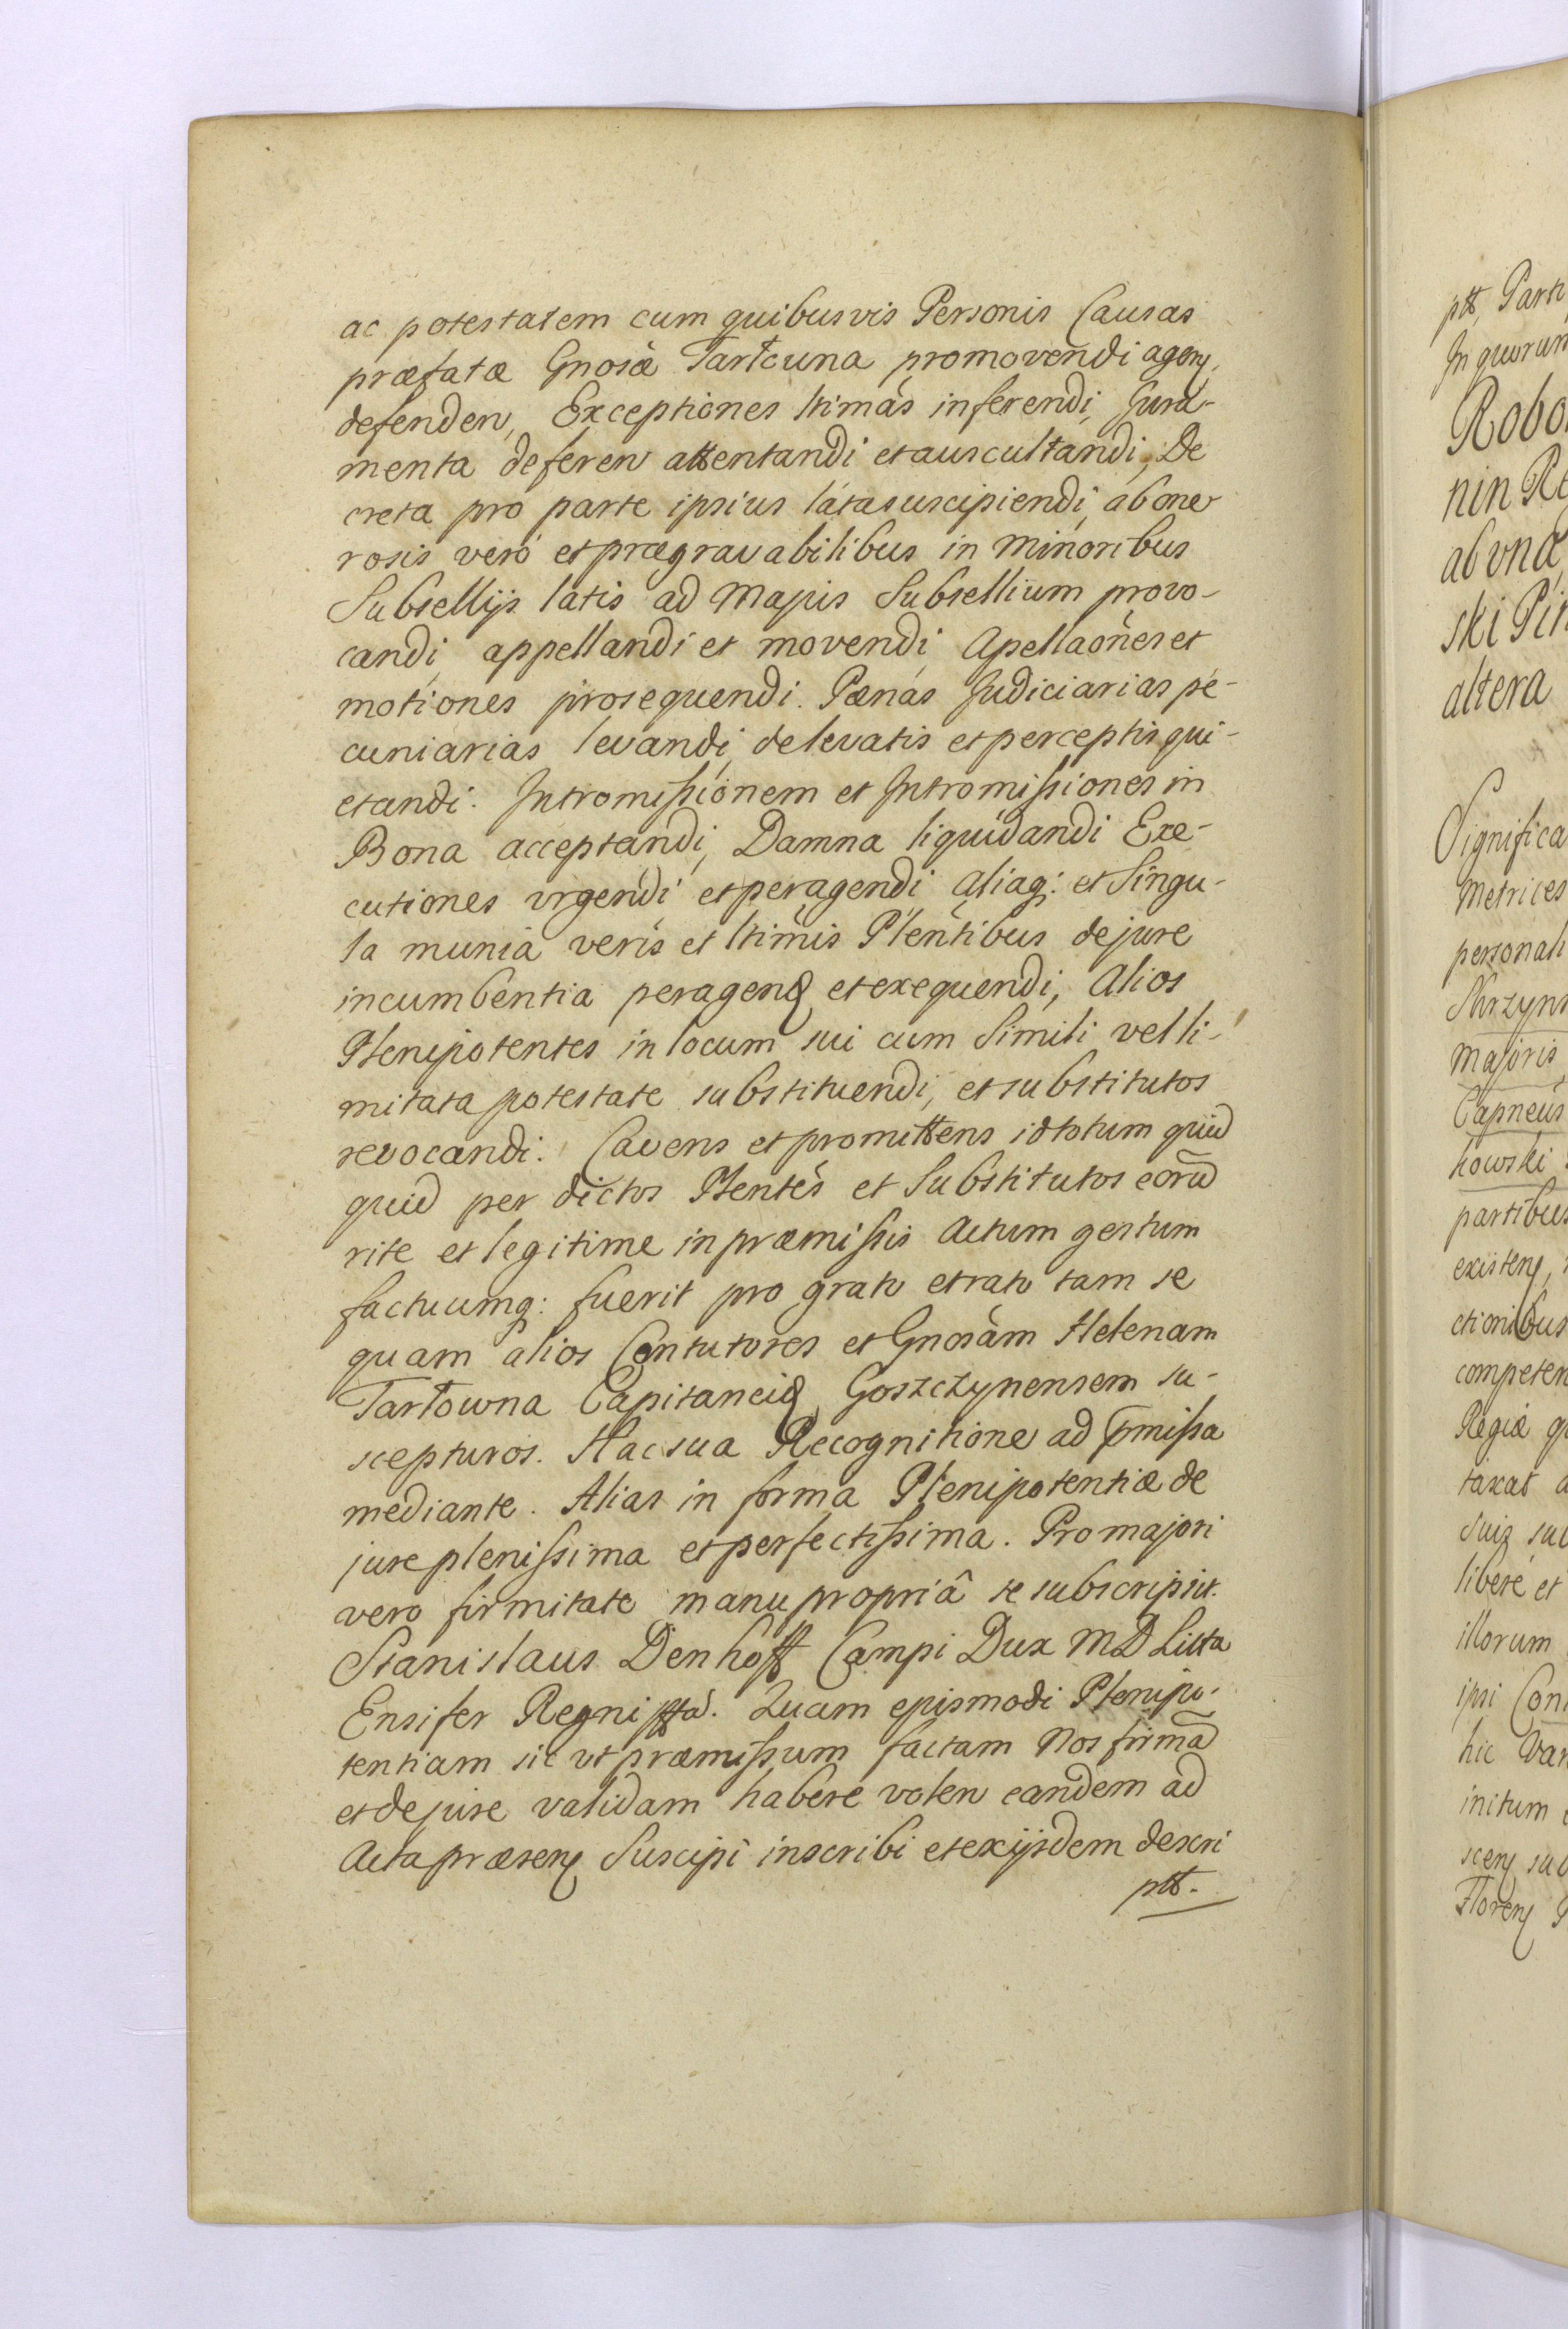 ac potestatem cum quibusvis Personis Causas
præfatæ Gnosæ Tarłowna promovendi agen,
defenden, Exceptiones ltimas inferendi, Jura-
menta deferen attentandi et auscultandi, De
creta pro parte ipsius lata suscipiendi, ab one
rosis vero et prægravabilibus in minoribus
Subsellijs latis ad Majus Subsellium provo-
candi, appellandi et movendi, Apellaões et
motiones prosequendi. Pænas Judiciarias pe-
cuniarias levandi, de levatis et perceptis qui-
etandi. Intromissionem et Intromissiones in
Bona acceptandi, Damna liquidandi Exe-
cutiones urgendi et peragendi aliaq: et Singu-
la munia veris et ltimis Plentibus de jure
incumbentia peragend et exequendi, Alios
Plenipotentes in locum sui cum simili vel li-
mitata potestate substituendi, et substitutos
revocandi. Cavens et promittens id totum quid
quid per dictos Plentes et Substitutos eorud
rite et legitime in præmissis Actum gestum
factuumq: fuerit pro grato et rato tam se
quam alios Contutores et Gnosam Helenam
Tarłowna Capitaneid Goszczynensem su-
scepturos. Hac sua Recognitione ad pmissa
mediante. Alias in forma Plenipotentiæ de
jure plenissima et perfectissima. Pro majori
vero firmitate manu propriâ se subscripsit.
Stanislaus Denhoff Campi Dux MD Litta
Ensifer Regni ptta. Quam ejusmodi Plenipo-
tentiam sic ut præmissum factam Nos firmā
et de jure validam habere volen eandem ad
Acta præsen Suscipi inscribi et ex ijsdem descri
ptt.
ptt, Parti
In quorum
Robo
nin Re
ab una
ski Pin
altera
Significa
Metrices
personali
Skrzyn
Majoris
Capneus
howski
partibus
existen,
ctionibus
competen
Regiæ q
taxat a
suiz suc
libere et
illorum
ipsi Con
hic Var
initum
scen sub
Floren P